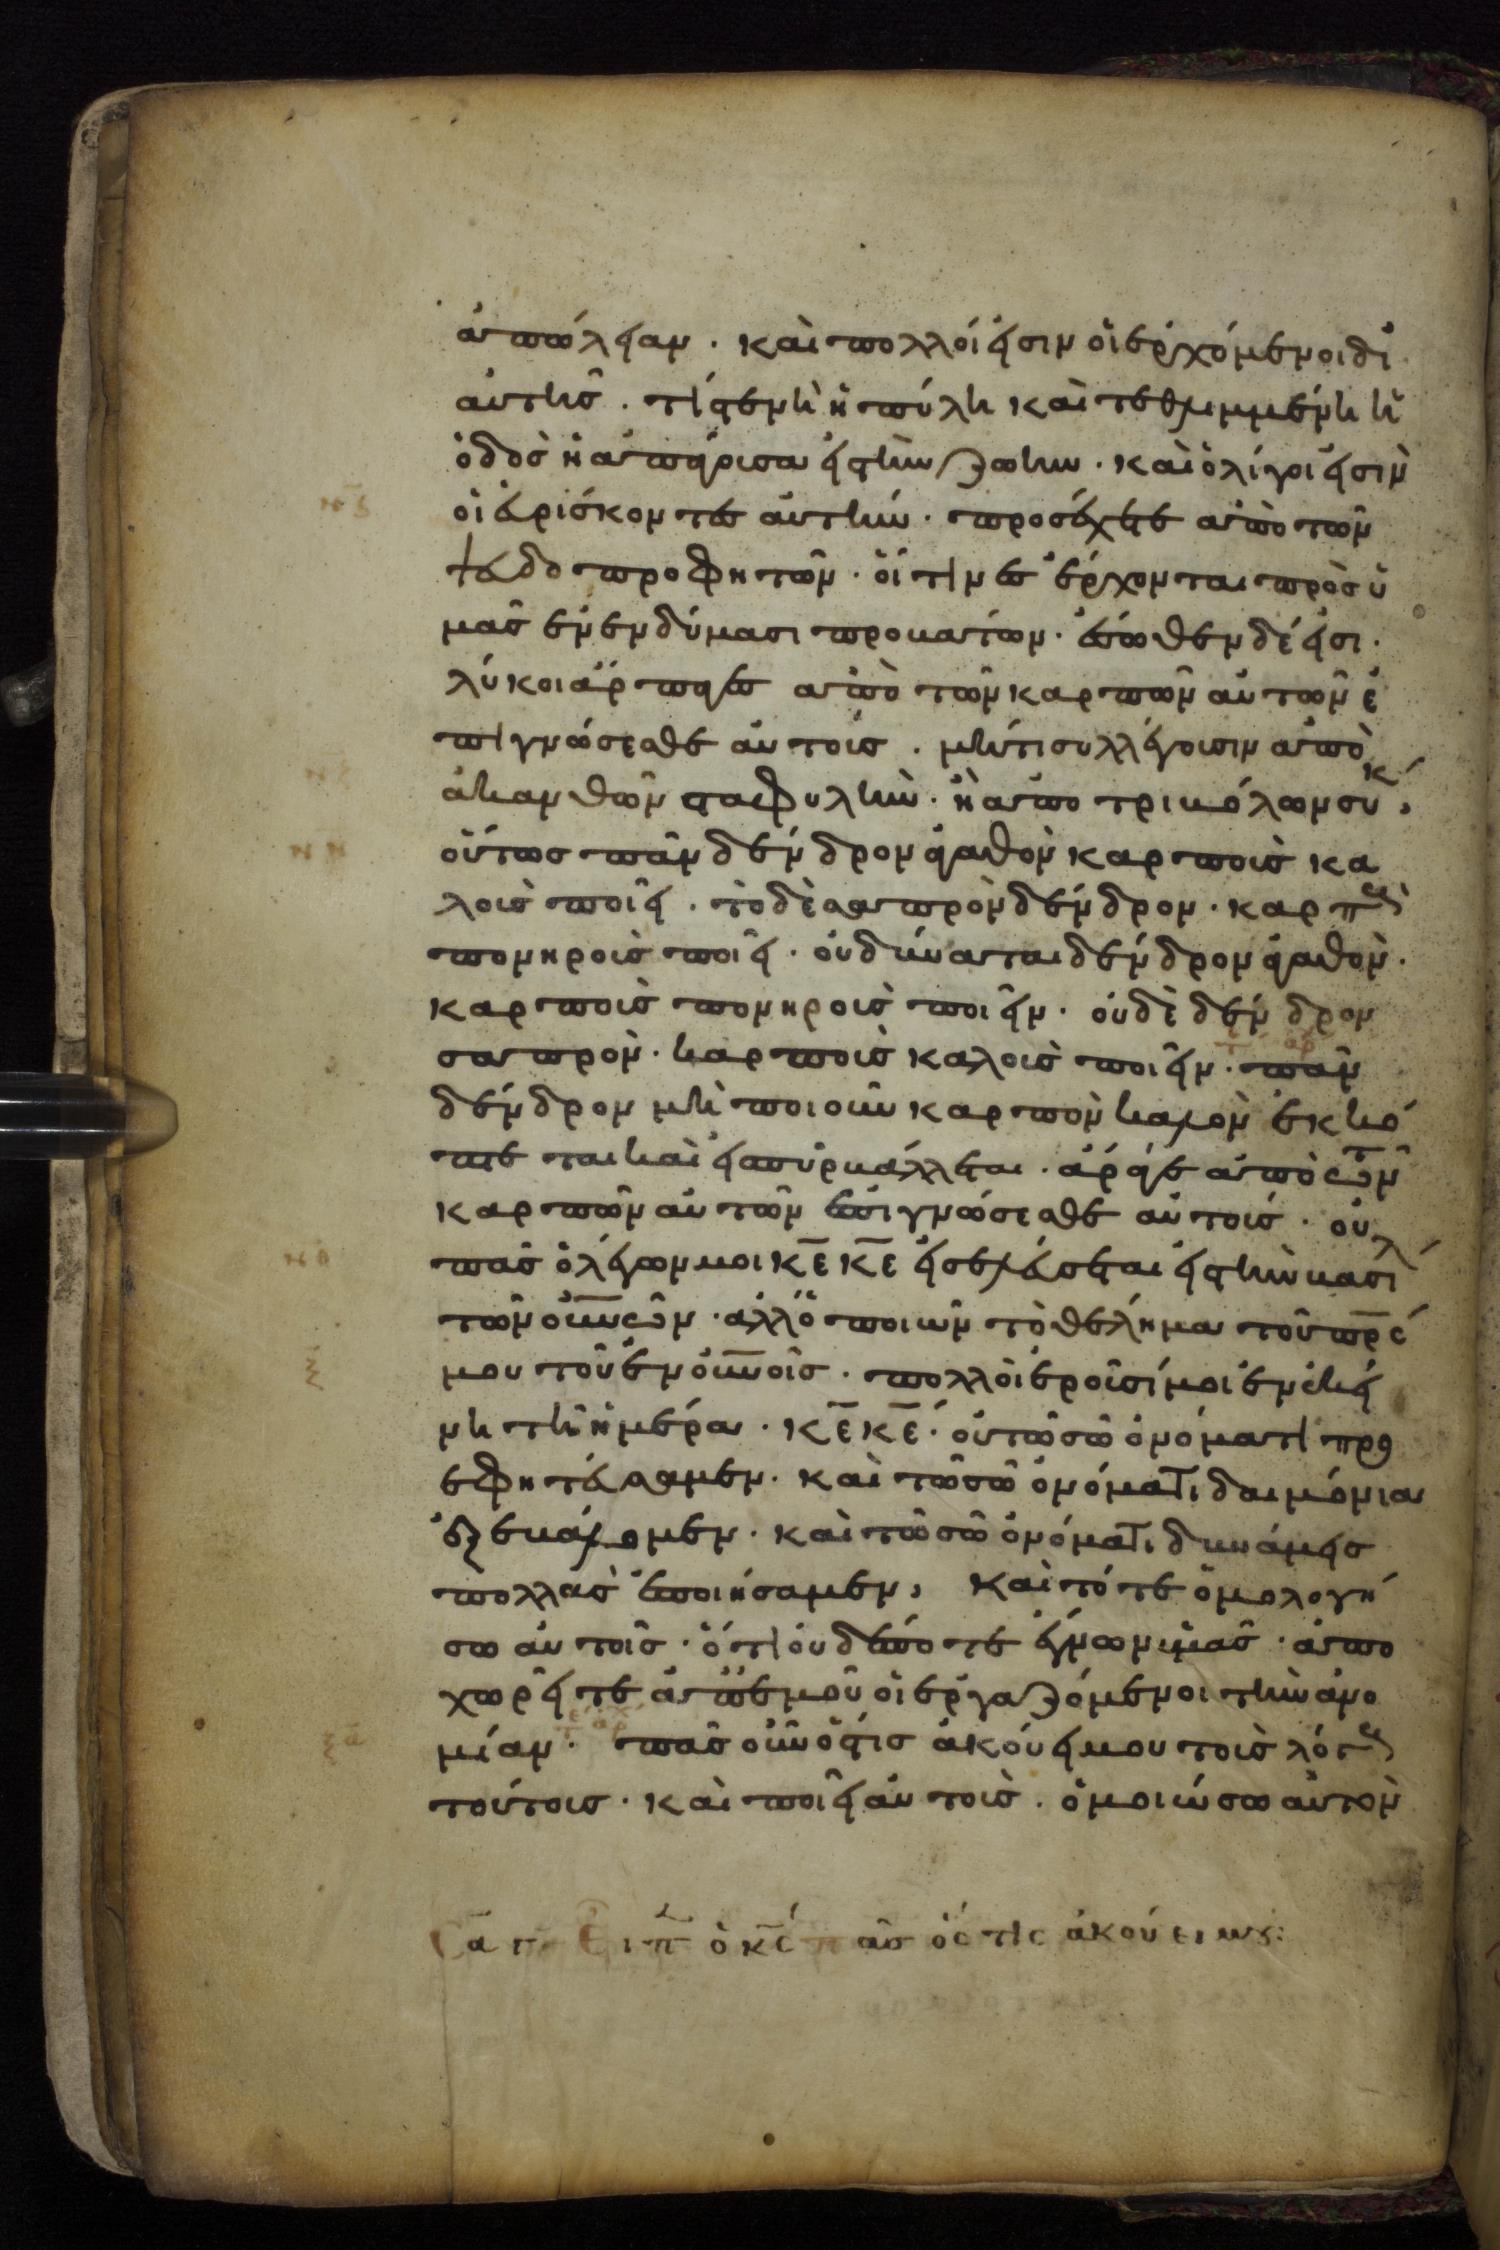 ἀπώλειαν · καὶ πολλοί εἰσιν οἱ ἐρχόμενοι δι
αὐτῆς · τί στενὴ ἡ πύλη καὶ τεθλιμμένη ἡ
ὁδὸς ἡ ἀπάγουσα εἰς τὴν ζωὴν · καὶ ὀλίγοι εἰσὶν
οἱ εὑρίσκοντες αὐτήν · προσέχετε ἀπὸ τῶν
ψευδοπροφητῶν · οἵτινες ἔρχονται πρὸς ὑ
μᾶς ἐν ἐνδύμασι προβάτων · ἔσωθεν δέ εἰσι ·
λύκοι ἅρπαγες ἀπὸ τῶν καρπῶν αὐτῶν ἐ
πιγνώσεσθε αὐτούς · μήτι συλλέγουσιν ἀπὸ
ἀκανθῶν σταφυλὴν · ἢ ἀπο τριβόλων συκ
οὕτως πᾶν δένδρον ἀγαθὸν καρποὺς κα
λοὺς ποιεῖ · τὸ δὲ σαπρὸν δένδρον · καρποὺς
πονηροὺς ποιεῖ · οὐ δύναται δένδρον ἀγαθὸν ·
καρποὺς πονηροὺς ποιεῖν · οὐδὲ δένδρον
σαπρὸν · καρποὺς καλοὺς ποιεῖν · πᾶν
δένδρον μὴ ποιοῦν καρπὸν καλὸν ἐκκό
πτεται καὶ εἰς πῦρ βάλλεται · ἄραγε ἀπὸ τῶν
καρπῶν αὐτῶν ἐπιγνώσεσθε αὐτούς · οὐ
πᾶς ὁ λέγων μοι κε κε εἰσελεύσεται εἰς τὴν βασιλ
τῶν οὐνῶν · ἀλλ ὁ ποιῶν τὸ θέλημα τοῦ πρς
μου τοῦ ἐν οὐνοῖς · πολλοὶ ἐροῦσί μοι ἐν ἐκεί
νῃ τῇ ἡμέρα · κε κε · οὐ τῶ σῶ ὀνόματι προ
εφητεύσαμεν · καὶ τῶ σῶ ὀνόματι δαιμόνια
ἐξεβάλομεν · καὶ τῶ σῶ ὀνόματι δυνάμεις
πολλὰς ἐποιήσαμεν, καὶ τότε ὁμολογή
σω αὐτοῖς · ὅτι οὐδέποτε ἔγνων ὑμᾶς · ἀπο
χωρεῖτε ἀπ ἐμοῦ οἱ ἐργαζόμενοι τὴν ἀνο
μίαν · πᾶς οὖν ὅστις ἀκούει μου τοὺς λόγους
τούτους · καὶ ποιεῖ αὐτοὺς · ὁμοιώσω αὐτὸν
ὁ κς πᾶς ὅστις ἀκούει μου: